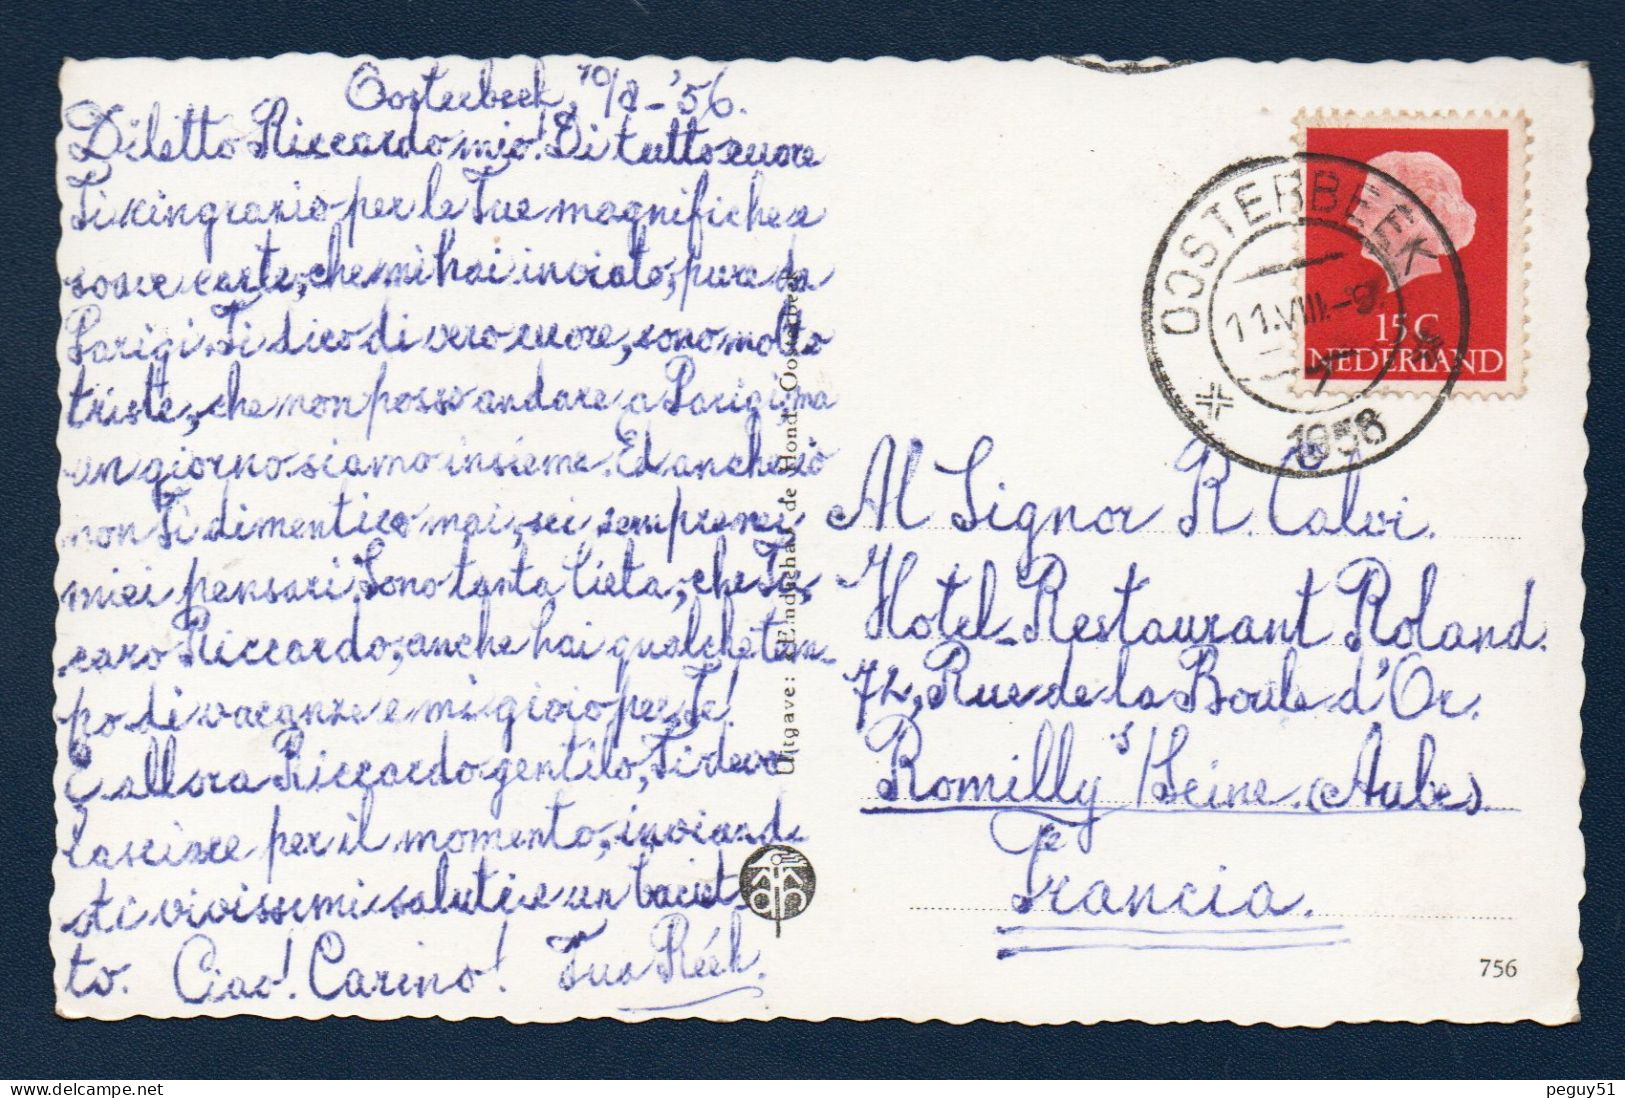 Oosterbeek, 10/8-'56.
Diletto Riccardo mio! Di tutto cuore
Ti ringrazio per le Tue magnifiche e
soave carte, che mi hai inviato, pure da
Parigi. Ti dico di vero cuore, sono molto
triste, che non posso andare a Parigi, ma
un giorno siamo insieme. Ed anche io
non Ti dimentico mai, sei sempre nei
miei pensari. Sono tanta lieta, che Tu,
caro Riccardo, anche hai qualche tem-
po di vacanze e mi gioio per Te!
E allora Riccardo gentilo, Ti devo
lasciare per il momento, inviando
ti vivissimi saluti e un baciet-
to. Ciao! Carino! Tua Réèh.
Uitgave: Boekhandel de Hond Oosterbeek
OOSTERBEEK
11.VIII.-9
1956
15 C
NEDERLAND
Al Signor R. Calvi.
Hotel-Restaurant Roland.
72, Rue de la Boule d'Or.
Romilly s/Seine. (Aube).
Francia.
756
peguy51